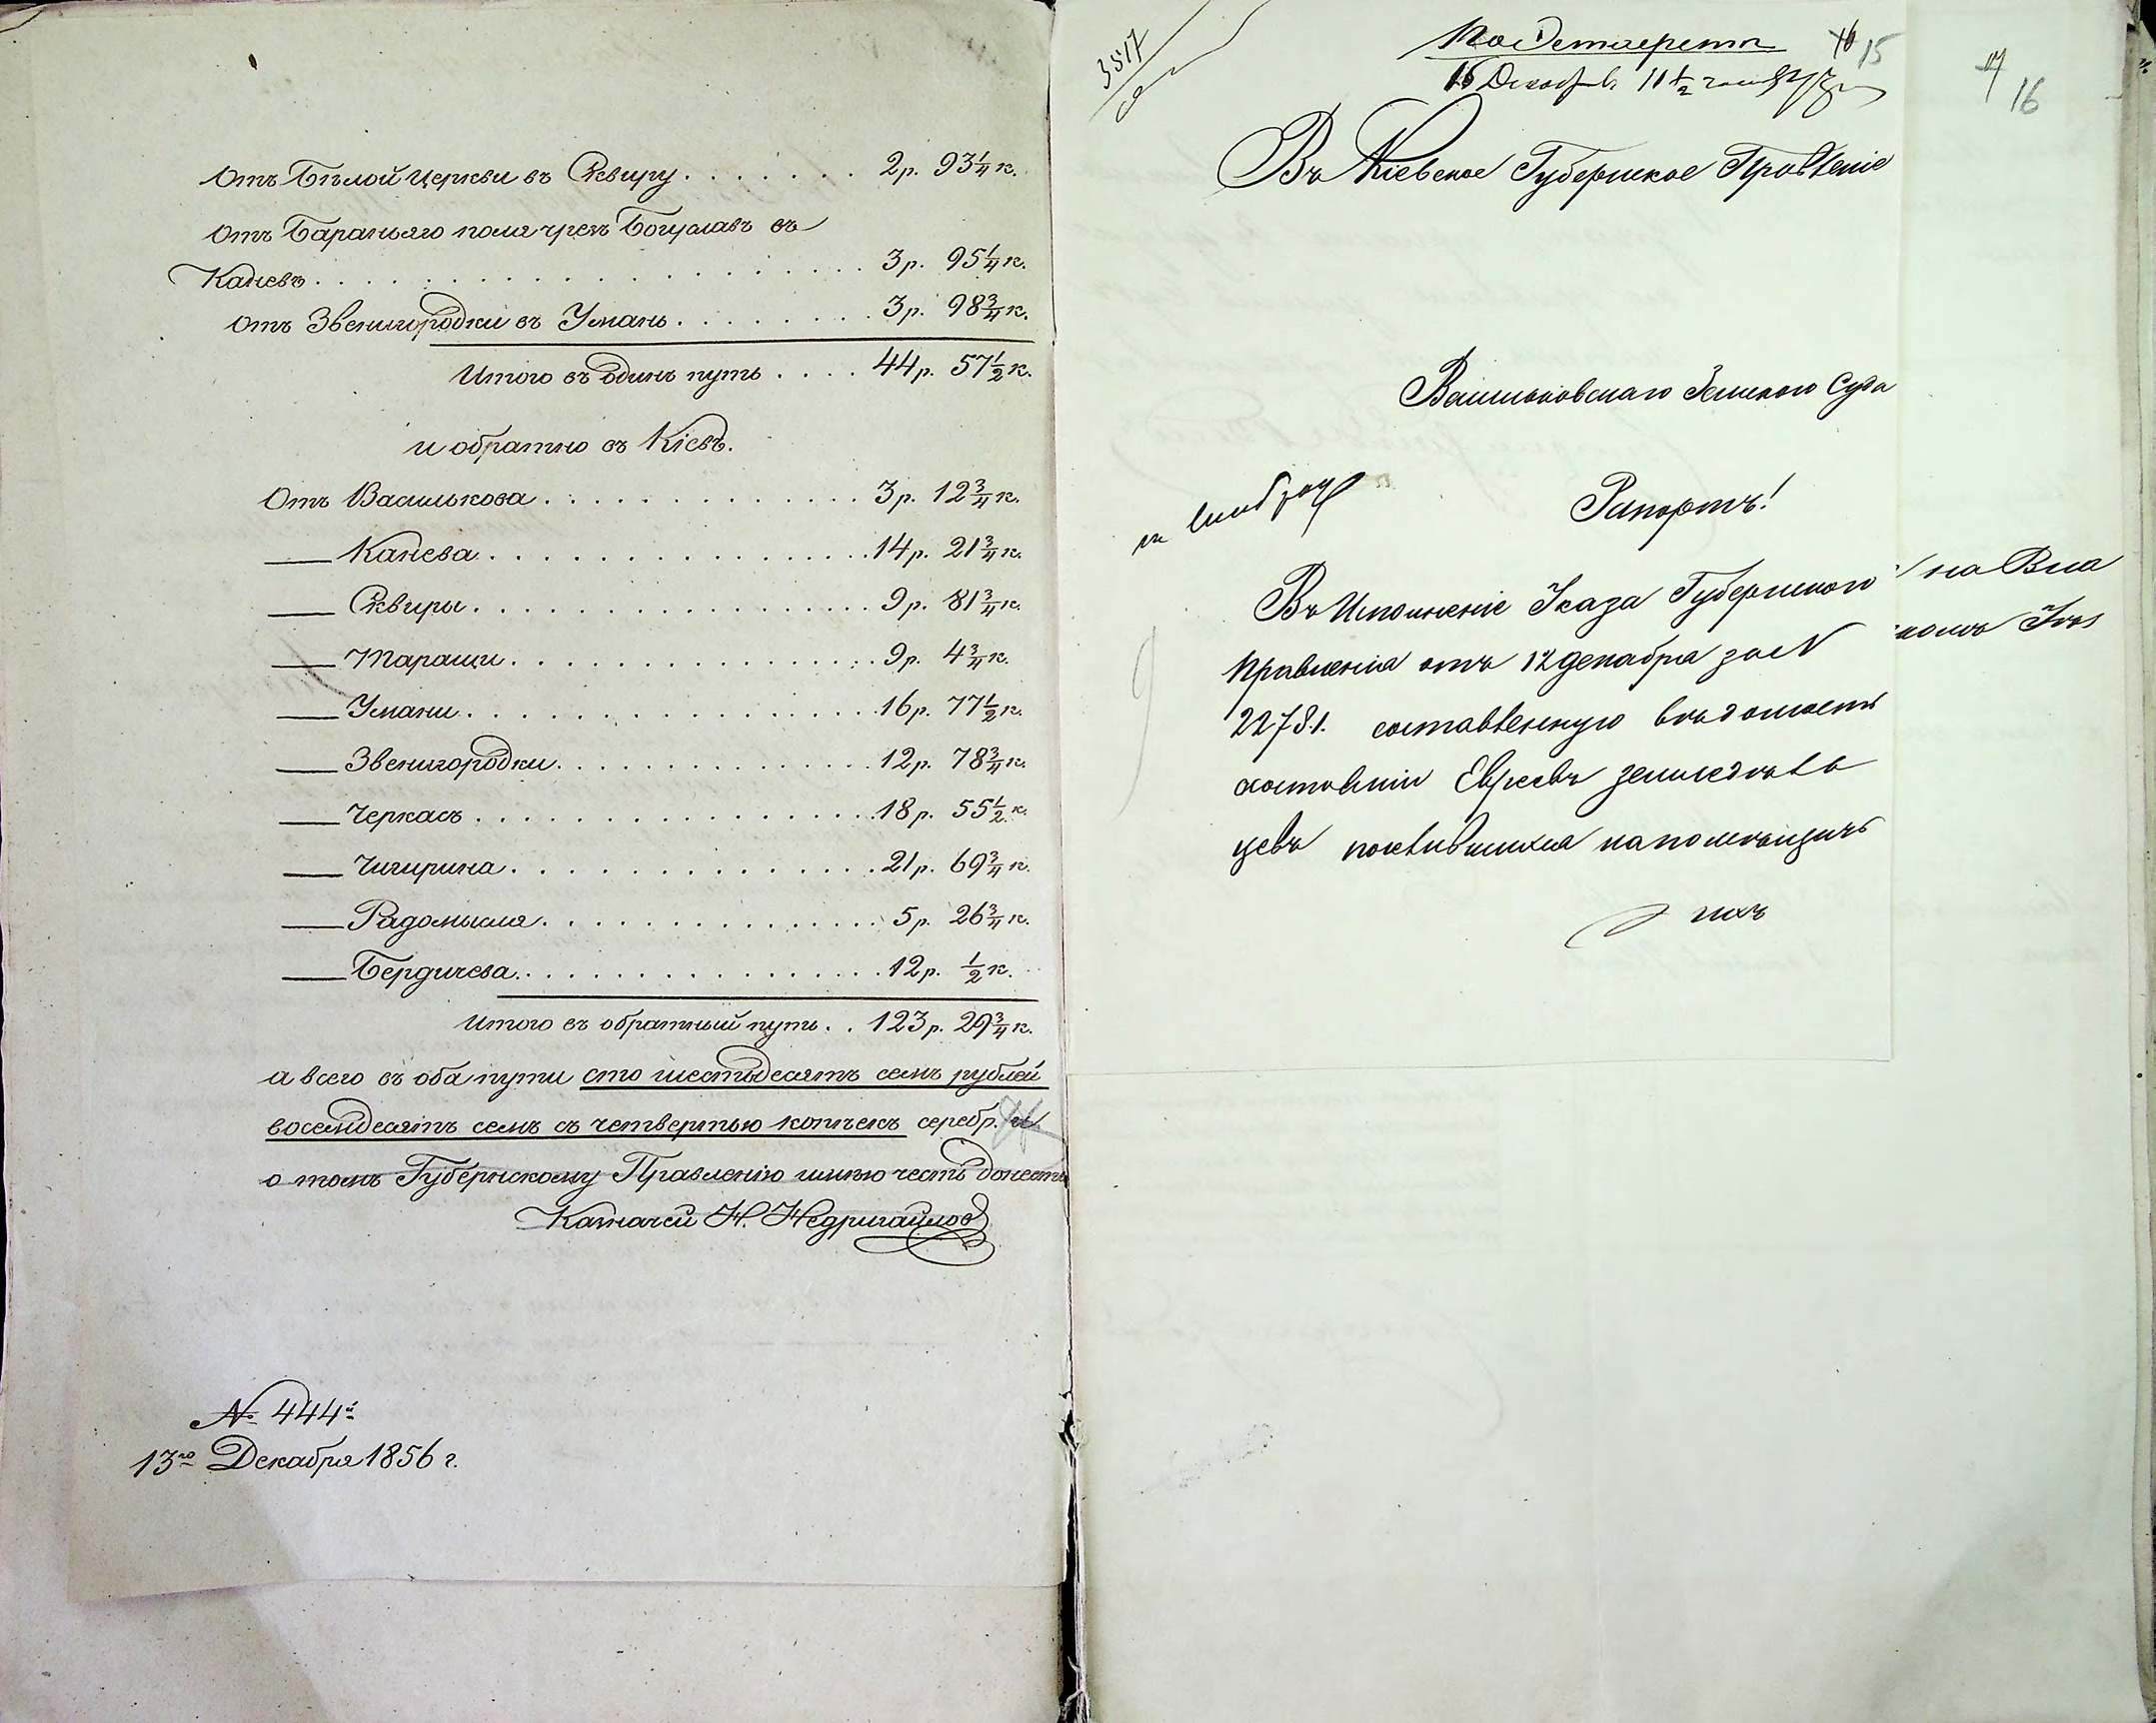 отъ Бѣлой Церкви въ Сквиру . . . . . . . 2 р. 93 1/4 к.
отъ Бараньяго поля чрезъ Богуславъ въ
Каневъ . . . . . . . . . . . . . . . . . . . . 3 р. 95 1/4 к.
отъ Звенигородки въ Умань . . . . . . . . 3 р. 98 3/4 к.
Итого въ одинъ путь . . . . 44 р. 57 1/2 к.
и обратно въ Кіевъ.
Отъ Василькова . . . . . . . . . . . . . 3 р. 12 3/4 к.
— Канева . . . . . . . . . . . . . . . 14 р. 21 3/4 к.
— Сквиры . . . . . . . . . . . . . . . 9 р. 81 3/4 к.
— Таращи . . . . . . . . . . . . . . 9 р. 4 3/4 к.
— Умани . . . . . . . . . . . . . . . . 16 р. 77 1/2 к.
— Звенигородки . . . . . . . . . . . . 12 р. 78 3/4 к.
— Черкасъ . . . . . . . . . . . . . . . 18 р. 55 1/2 к.
— Чигирина . . . . . . . . . . . . . . 21 р. 69 3/4 к.
— Радомысля . . . . . . . . . . . . . 5 р. 26 3/4 к.
— Бердичева . . . . . . . . . . . . . . 12 р. 1/2 к.
Итого въ обратный путь . . 123 р. 29 3/4 к.
а всего въ оба пути сто шестьдесятъ семь рублей
восемдесятъ семь съ четвертью копѣекъ серебр.
о томъ Губернскому Правленію имѣю честь донесть
Казначей Н. Недригайлов
№ 444й
13го Декабря 1856 г.
3517
16 15
16 Декабря 11 1/2
17 16
Въ Кіевское Губернское Правленіе
Васильковскаго Земского Суда
Рапортъ!
Въ Исполненіе Указа Губернского
Правленія отъ 12 декабря за N
22781. составленную вѣдомость
о состояніи Евреевъ земледѣль
цевъ поселившихся на помѣщичь
ихъ